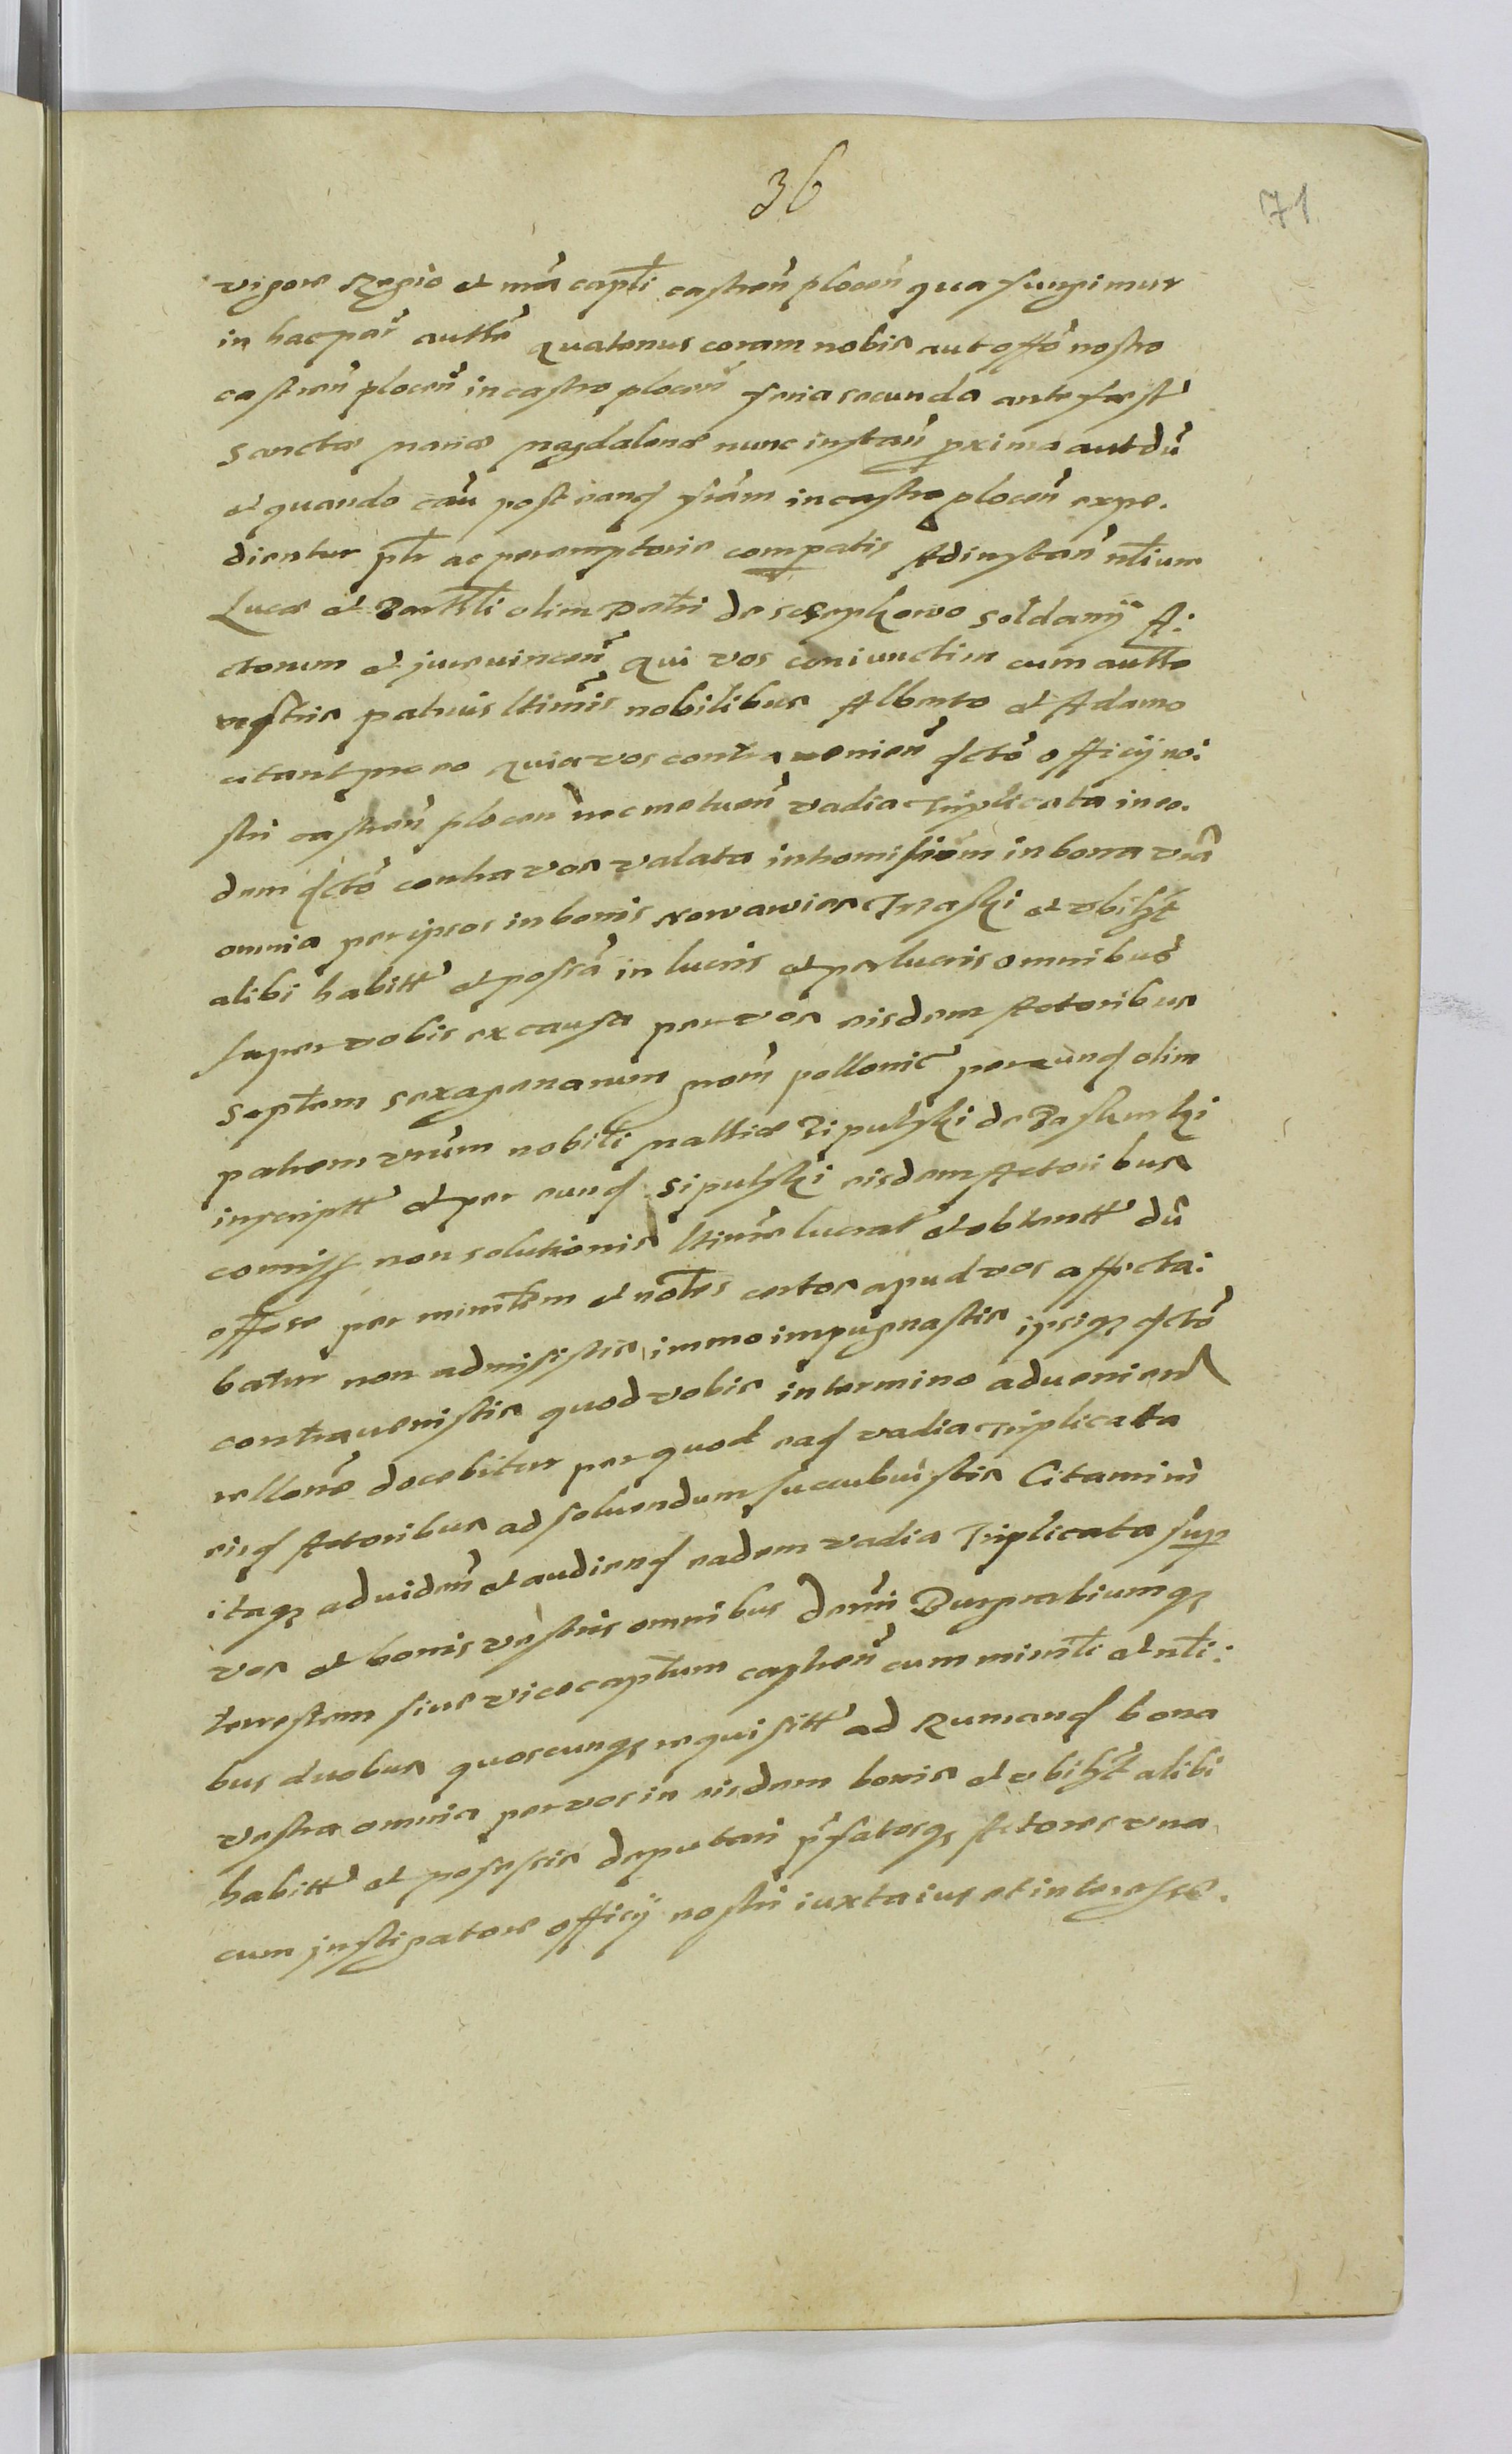 36
71
vigore Regio et mea captli castren plocen qua fungimur
in hac par autte quatenus coram nobis aut offo nostro
castren plocen in castro plocen feria secunda ante fest
Sanctæ Mariæ Magdalenæ nunc instan proxima aut du
et quando cau post eand feriam in castro plocen expe.
dientur ptr ac peremptorie compatis Ad instan nlium
Lucæ et Barthli olim Petri de Soldany A:
ctorum et jurevincen Qui vos coniunctim cum autte
vestris patruis ltimis nobilibus Alberto et Adamo
citant pro eo Quia vos contra venien dcto officij no:
stri castren plocen nec metuen vadia Triplicata in eo.
dem dcto contra vos valata intromissioem in bona vra
omnia per ipsos in bonis Nowawies Traski et ubilzt
alibi habitt et possa in lucris et perlucris omnibus
super vobis ex causa per vos eisdem Actoribus
Septem sexagenarum grom pollonic per eund olim
patrem vrum nobili Mattiæ Sipulski de
inscriptt et per eund Sipulski eisdem Actoribus
comiss non solutionis ltime lucrat et obtentt du
offese per minrlem et nobles certos apud vos affecta:
batur non admisistis, immo impugnastis ipsiq dcto
contravenistis quod vobis in termino advenien
rellone docebitur per quod ead vadia Triplicatta
eisd Actoribus ad solvendum succubuistis Citamini
itaq ad viden et audiend eadem vadia Triplicata sup
vos et bonis vestris omnibus Burgrabiumq
terrestrem sive vicecaptum castren cum minrli et nli:
bus duobus quoscunq requisitt ad Rumand bona
vestra omnia per vos in eisdem bonis et ubilzt alibi
habitt et possessis deputari pfatosq Actores una
cum justigatore officij nostri iuxta ius et interesse.